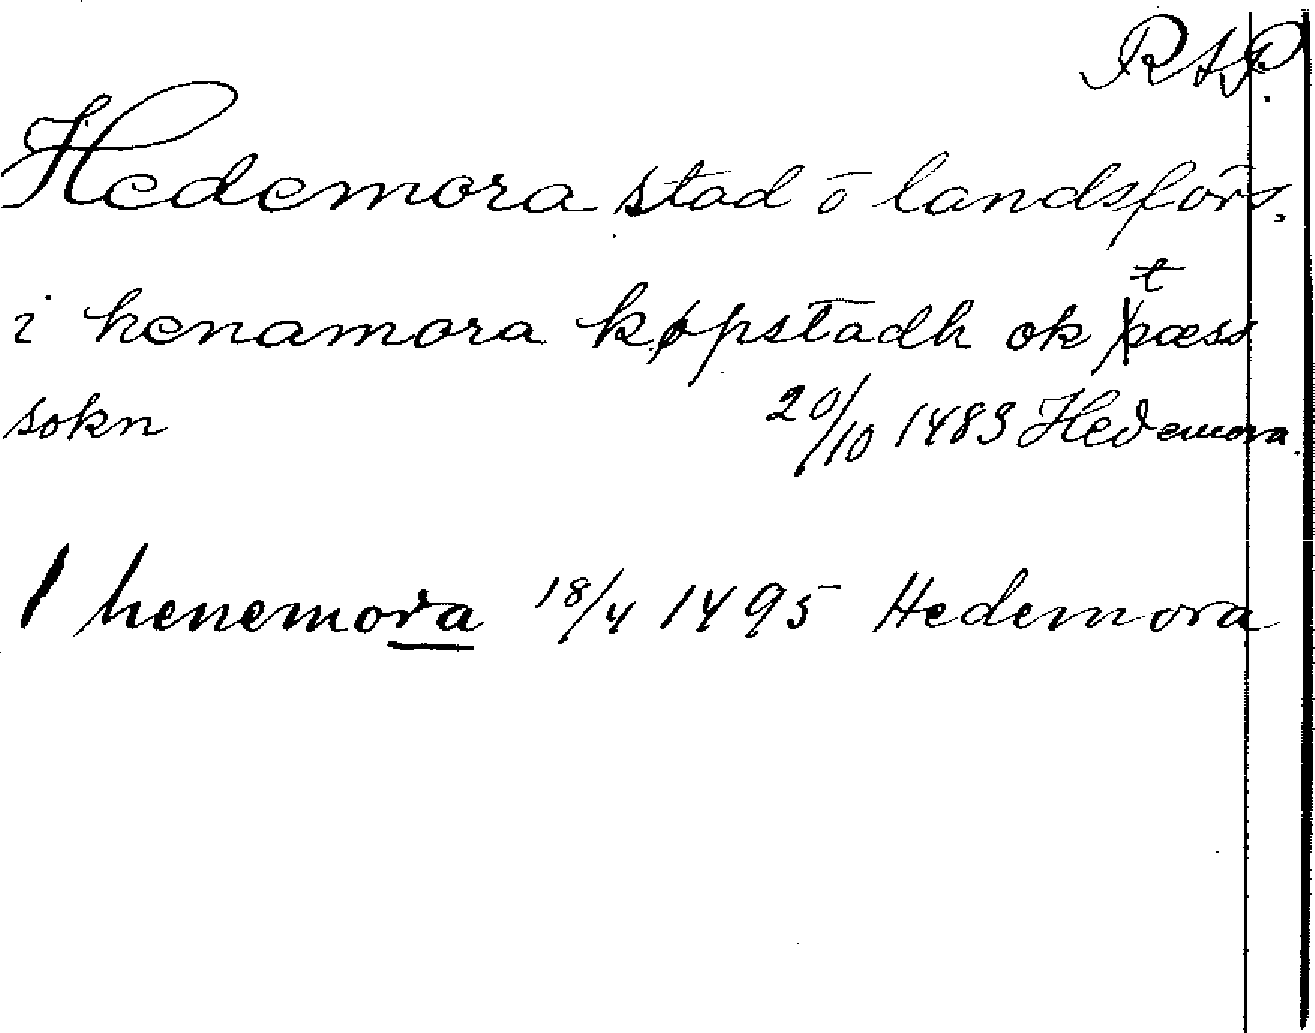 RAP.
Hedemora stad o landsförs.
i henamora køpstadh ok tæss
sokn 20/10 1483 Hedemora.
I henemora 18/4 1495 Hedemora